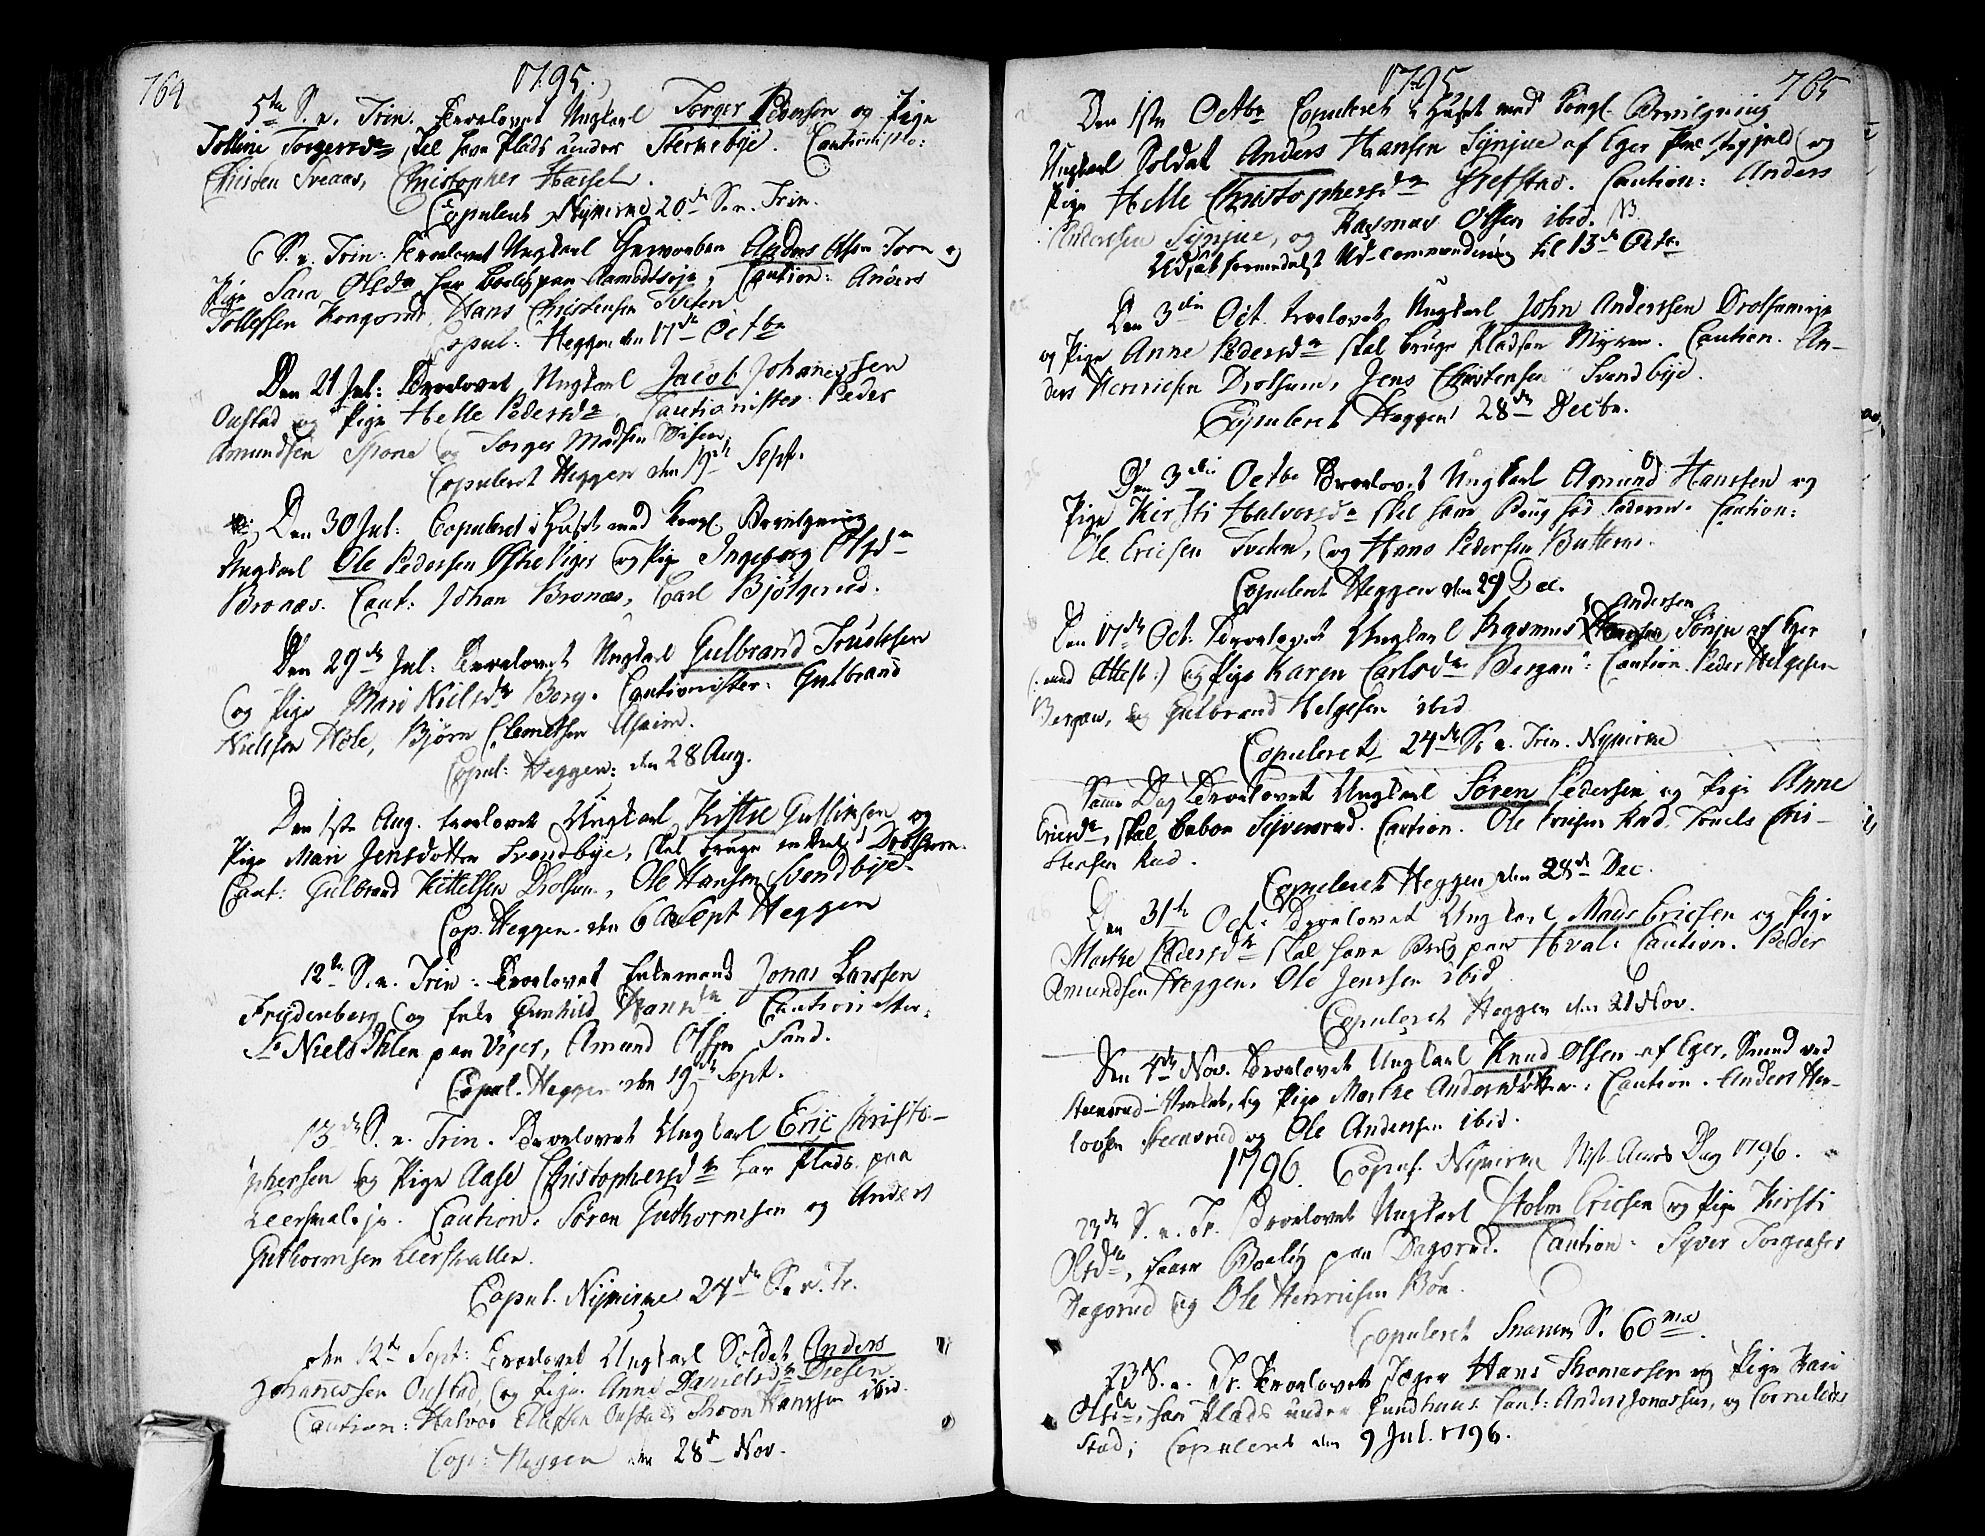 764
1795.
5te S. n. Trin. Trolovet Ungkarl Torger Pedersen og Pige
Tolline Torgersd. skal have Plads under Sternebye. Cautionister:
Christen Sveaas, Christopher Hassel.
Copuleret Nykirke 20de S. n. Trin.
6 S. n. Trin: Trolovet Ungkarl Anders Olsen og
Pige Sara Olsd. har Caution: Anders
Tollefsen Kongsrud, Hans Christensen Tveten
Copul: Heggen den 17de Octbr
Den 21 Jul: Trolovet Ungkarl Jacob Johannessen
Oustad og Pige Helle Pedersd. Cautionister Peder
Amundsen Spone og Torger Madsen
Copuleret Heggen den 19de Sept.
Den 30 Jul: Copuleret i Huset med Kongl. Bevilgning
Ungkarl Ole Pedersen og Pige Ingeborg Olsd.
Bronæs. Caut: Johan Bronæs, Carl Bjølgerud.
Den 29de Jul: Trolovet Ungkarl Gulbrand Trulssen
og Pige Mari Nielsd. Berg. Cautionister: Gulbrand
Nielssen Hole, Bjørn Clemetsen Asaim.
Copul: Heggen: den 28 Aug.
Den 1ste Aug. trolovet Ungkarl Kittil Gullixsen og
Pige Mari Jensdotter Svendbye, skal bruge
Caut: Gulbrand Kittelsen Drolsum, Ole Hansen Svendbye.
Cop. Heggen den 6 Sept Heggen
12te S. n. Trin: Trolovet Enkemand Jonas Larssen
Frydenberg og Enke Gunhild Cautionister:
Niels Ihlen paa Viger, Amund Olssen Sand.
Copul. Heggen den 19de Sept.
13de S. n. Trin. Trolovet Ungkarl Eric Christo-
phersen og Pige Aase Christophersd. har Plads paa
Leersval Caution: Søren Guthormsen og Anders
Guthormsen Leersvallen.
Copul. Nykirke 24de S. n. Tr.
den 12te Sept: Trolovet Ungkarl Soldat Anders
Johannessen Oustad, og Pige Anne Danielsd. Diesen
Caution: Halvor Ellefsen Oustad, Hanssen ibid.
Cop: Heggen den 28d Nov.
1795
765
Den 1ste Octbr Copuleret i Huset med Kongl. Bevilgning
Ungkarl Soldat Anders Hansen Synjue af Eger Præstegjeld og
Pige Helle Christophersd. Grefstad. Caution: Anders
Andersen Synjue, og Rasmus Olsen ibid. NB.
Udsat formedelst Ud-commandering til 13de Octbr
Den 3die Oct. trolovet Ungkarl John Anderssen Drolsumeje
og Pige Anne Pedersd. skal bruge Pladsen Myren. Caution. An-
ders Henricsen Drolsum, Jens Christensen Svendbye.
Copuleret Heggen 28de Decbr.
Den 3die Octbr Trolovet Ungkarl Amund Hanssen og
Pige Kirsti Halvorsd. skal have Caution:
Ole Ericsen Tveten, og Hans Pedersen Butterud.
Copuleret Heggen den 29 Dec.
Andersen
Den 17de Oct: Trolovet Ungkarl Rasmus Sønju af Eger
(: med Attest :) og Pige Karen Carlsd. Bergan: Caution. Peder Helgesen
Bergan, og Gulbrand Helgesen ibid
Copuleret 24de S. n. Trin. Nykirke
Same Dag Trolovet Ungkarl Søren Pedersen og Pige Anne
Ericsd., skal beboe Syversrud. Caution. Ole Ericsen Rud, Troels Chri-
stensen Rud.
Copuleret Heggen den 28de Dec.
Den 31te Oct: Trolovet Ungkarl Mads Ericsen og Pige
Marthe Pedersd. skal have Brug paa Hval. Caution. Peder
Amundsen Heggen, Ole Jenssen ibid
Copuleret Heggen den 21 Nov.
Den 4de Nov. Trolovet Ungkarl Knud Olssen af Eger, Smed ved
Steensrud-Verket, og Pige Marthe Andersdotter: Caution. Anders Hen-
Steensrud og Ole Andersen ibid.
1796. Copul. Nykirke Nyt Aars Dag 1796.
23de S. n. Tr. Trolovet Ungkarl Holm Ericsen og Pige Kirsti
Olsd., faaer Bolig paa Dagorud. Caution: Syver Torgersen
Dagorud og Ole Henricsen Bøe.
Copuleret Snarum S. 60mæ.
23 S. n. Tr. Trolovet Jæger Hans Thomassen og Pige Kari
Olsd., har Plads under Gundhuus. Caut: Anders Jonassen, og Cornelius
Stad; Copuleret den 9 Jul. 1796.